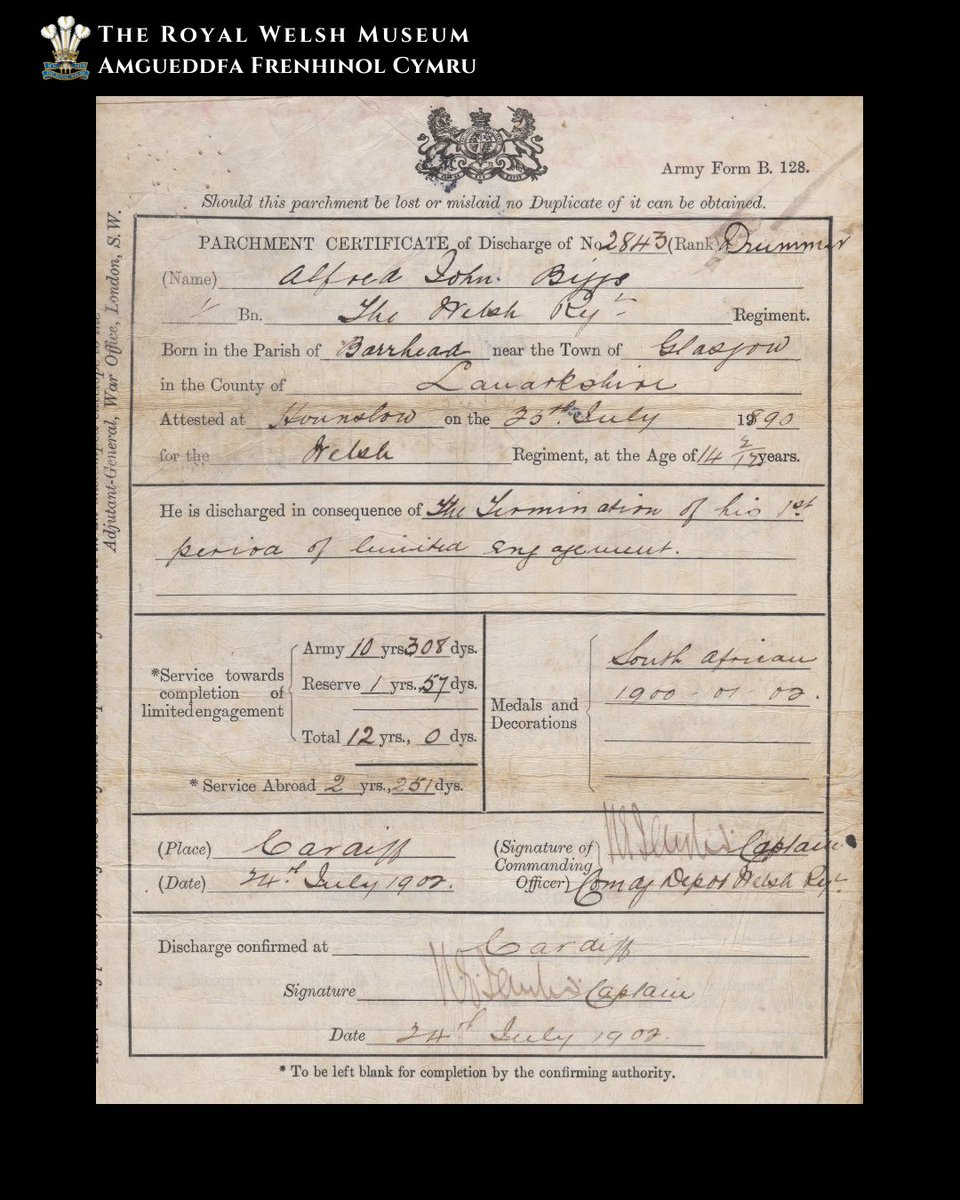 THE ROYAL WELSH MUSEUM
AMGUEDDFA FRENHINOL CYMRU
Army Form B. 128.
Should this parchment be lost or mislaid no Duplicate of it can be obtained.
Adjutant-General, War Office, London, S.W.
PARCHMENT CERTIFICATE of Discharge of No 2843 (Rank) Drummer
(Name) Alfred John Biggs
1 Bn. The Welsh Regt Regiment.
Born in the Parish of Barrhead near the Town of Glasgow
in the County of Lanarkshire
Attested at Hounslow on the 25th July 1890
for the Welsh Regiment, at the Age of 14 2/12 years.
He is discharged in consequence of The Termination of his 1st
period of limited engagement.
*Service towards completion of limited engagement
Army 10 yrs 308 dys.
Reserve 1 yrs. 57 dys.
Total 12 yrs., 0 dys.
* Service Abroad 2 yrs., 251 dys.
Medals and Decorations
South African
1900-01-02.
(Place) Cardiff
(Date) 24th July 1902.
(Signature of Commanding Officer) Captain
Comdg Depot Welsh Regt
Discharge confirmed at Cardiff
Signature Captain
Date 24th July 1902.
* To be left blank for completion by the confirming authority.